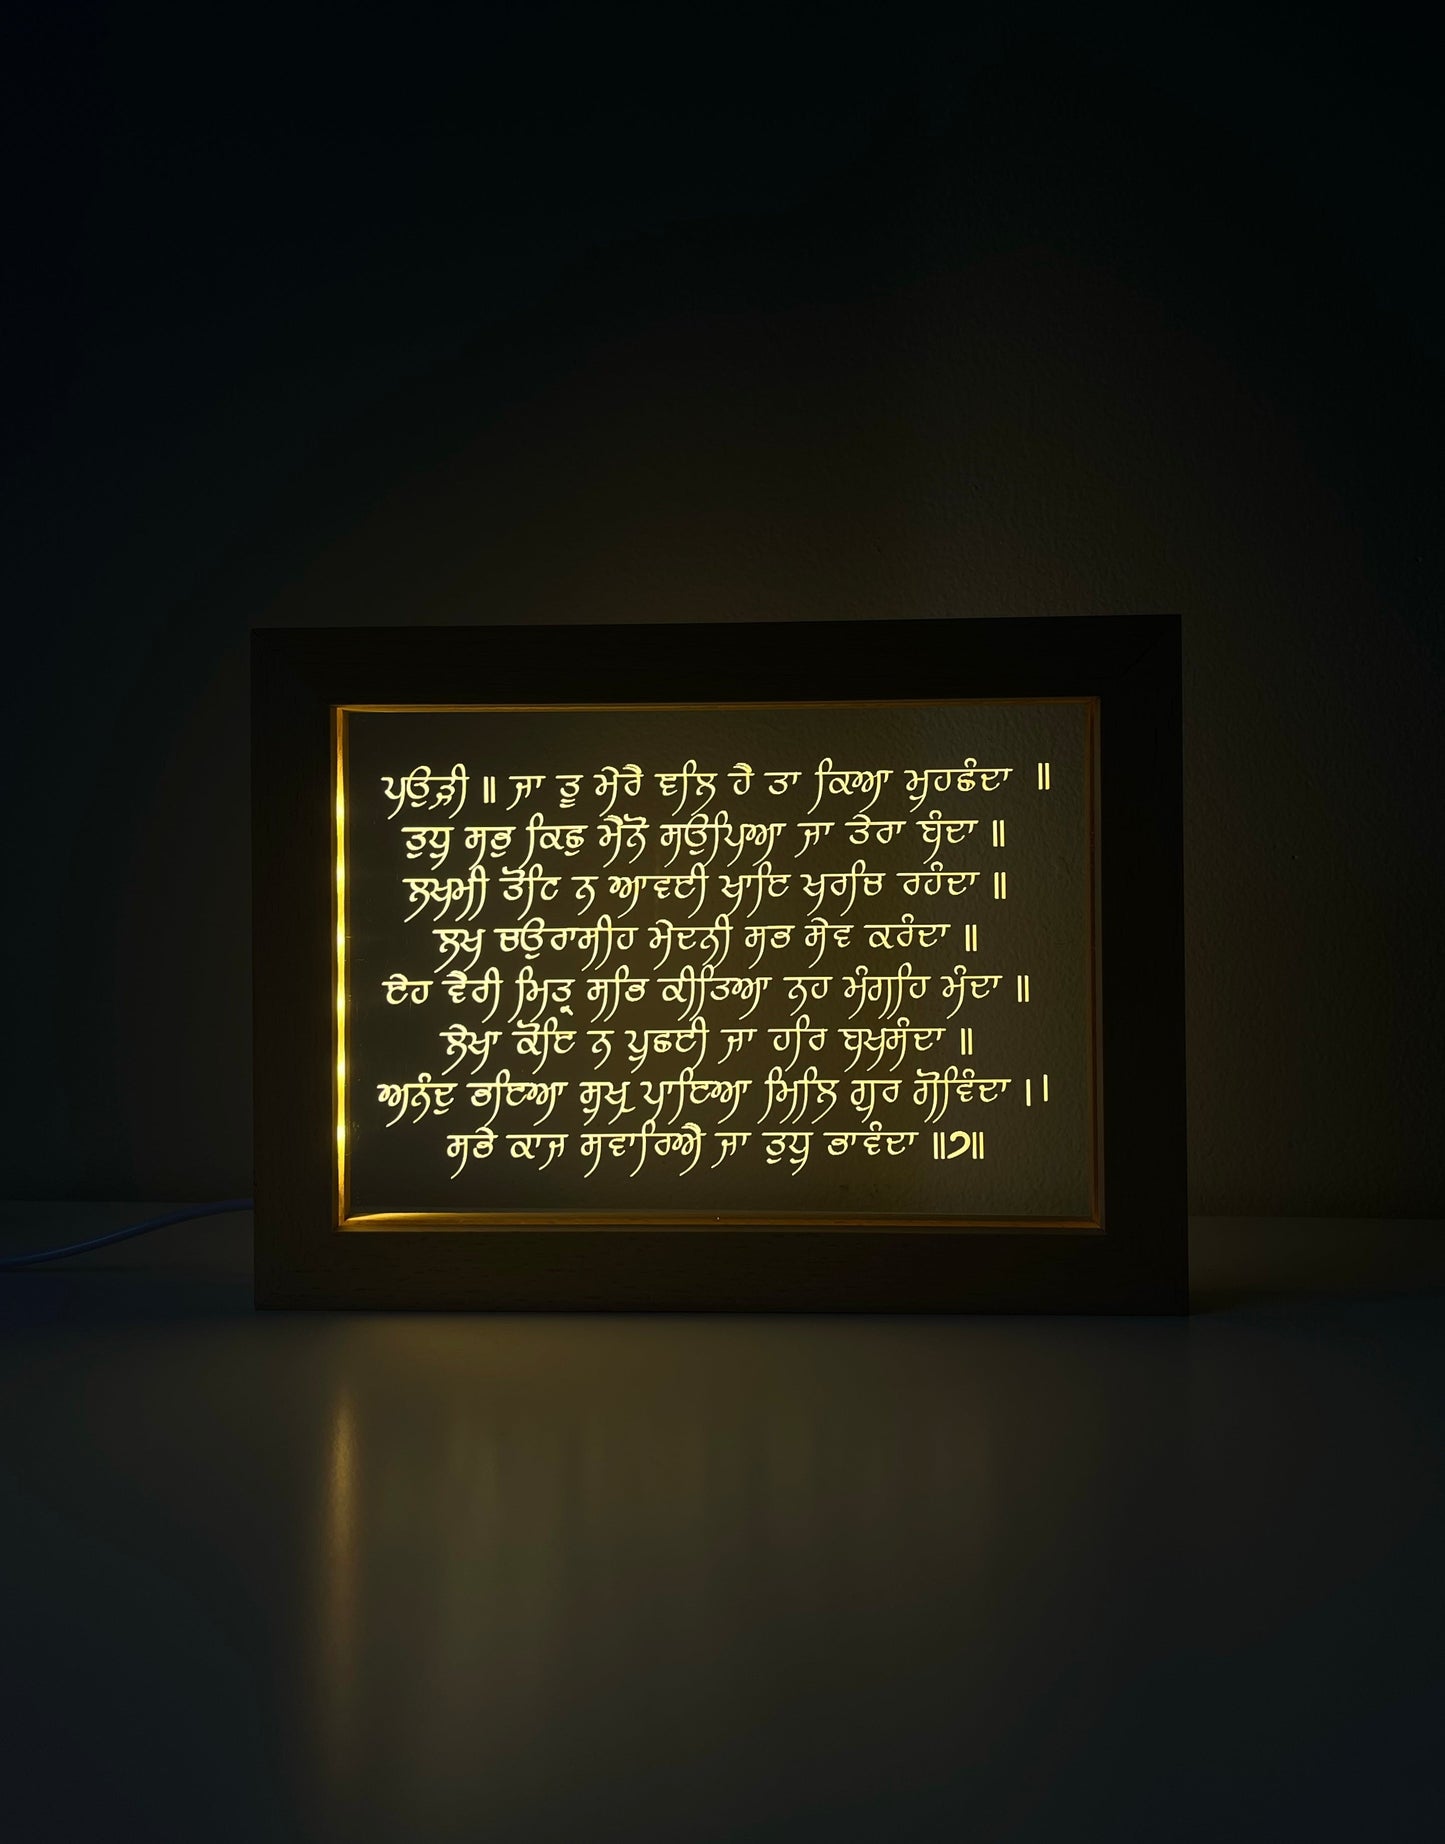 ਪਉੜੀ ॥ ਜਾ ਤੂ ਮੇਰੈ ਵਲਿ ਹੈ ਤਾ ਕਿਆ ਮੁਹਛੰਦਾ ॥
ਤੁਧੁ ਸਭੁ ਕਿਛੁ ਮੈਨੋ ਸਉਪਿਆ ਜਾ ਤੇਰਾ ਬੰਦਾ ॥
ਲਖਮੀ ਤੋਟਿ ਨ ਆਵਈ ਖਾਇ ਖਰਚਿ ਰਹੰਦਾ ॥
ਲਖ ਚਉਰਾਸੀਹ ਮੇਦਨੀ ਸਭ ਸੇਵ ਕਰੰਦਾ ॥
ਏਹ ਵੈਰੀ ਮਿਤ੍ਰ ਸਭਿ ਕੀਤਿਆ ਨਹ ਮੰਗਹਿ ਮੰਦਾ ॥
ਲੇਖਾ ਕੋਇ ਨ ਪੁਛਈ ਜਾ ਹਰਿ ਬਖਸੰਦਾ ॥
ਅਨੰਦੁ ਭਇਆ ਸੁਖੁ ਪਾਇਆ ਮਿਲਿ ਗੁਰ ਗੋਵਿੰਦਾ ।।
ਸਭੇ ਕਾਜ ਸਵਾਰਿਐ ਜਾ ਤੁਧੁ ਭਾਵੰਦਾ ॥੭॥